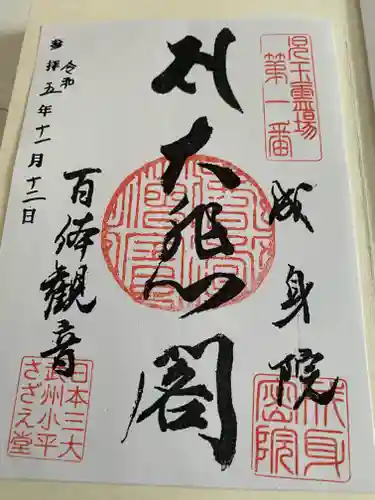 児玉霊場
第一番
成身院
大悲閣
百体観音
奉拝
令和
五年十一月十二日
日本三大
武州小平
さざえ堂
成身
密院